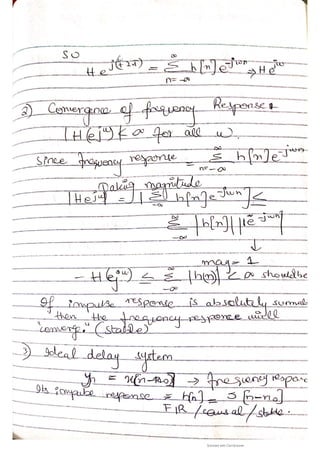 SO
H e^j(ω+2π) = Σ h[n] e^-jωn → H e^jω
n=-∞
2) Convergence of frequency Response:
|H(e^jω)| < ∞ for all ω.
Since frequency response = Σ h[n] e^-jωn
n=-∞
Taking magnitude
|He^jω| = |Σ h[n] e^-jωn| ≤
-∞
Σ |h[n]| |e^-jωn|
-∞
↓
mag = 1
- H(e^jω) ≤ Σ |h(n)| < ∞ should be
-∞
If impulse response is absolutely summab
then the frequency response will
"converge." (stable)
3) Ideal delay system
yn = x[n-n0] → frequency respons
Its impulse response = h[n] = δ[n-n0]
FIR / causal / stable.
Scanned with CamScanner